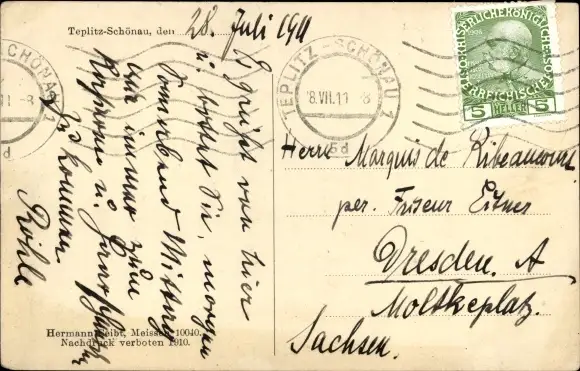 Teplitz-Schönau, den 28. Juli 1911
Es grüßt von hier
u. bittet Sie, morgen
Sonnabend Mittag
wie immer zum
u.
zu kommen
Röhle
Hermann Seibt, Meissen 10040.
Nachdruck verboten 1910.
SCHÖNAU 1
11 - 8
5d
TEPLITZ - SCHÖNAU 1
8.VII.11 - 8
5d
KAISERLICHE KÖNIGLICHE
ÖSTERREICHISCHE
5 HELLER 5
Herrn Marquis de Ribeaucourt
per. Friseur Eitner
Dresden. A
Moltkeplatz.
Sachsen.